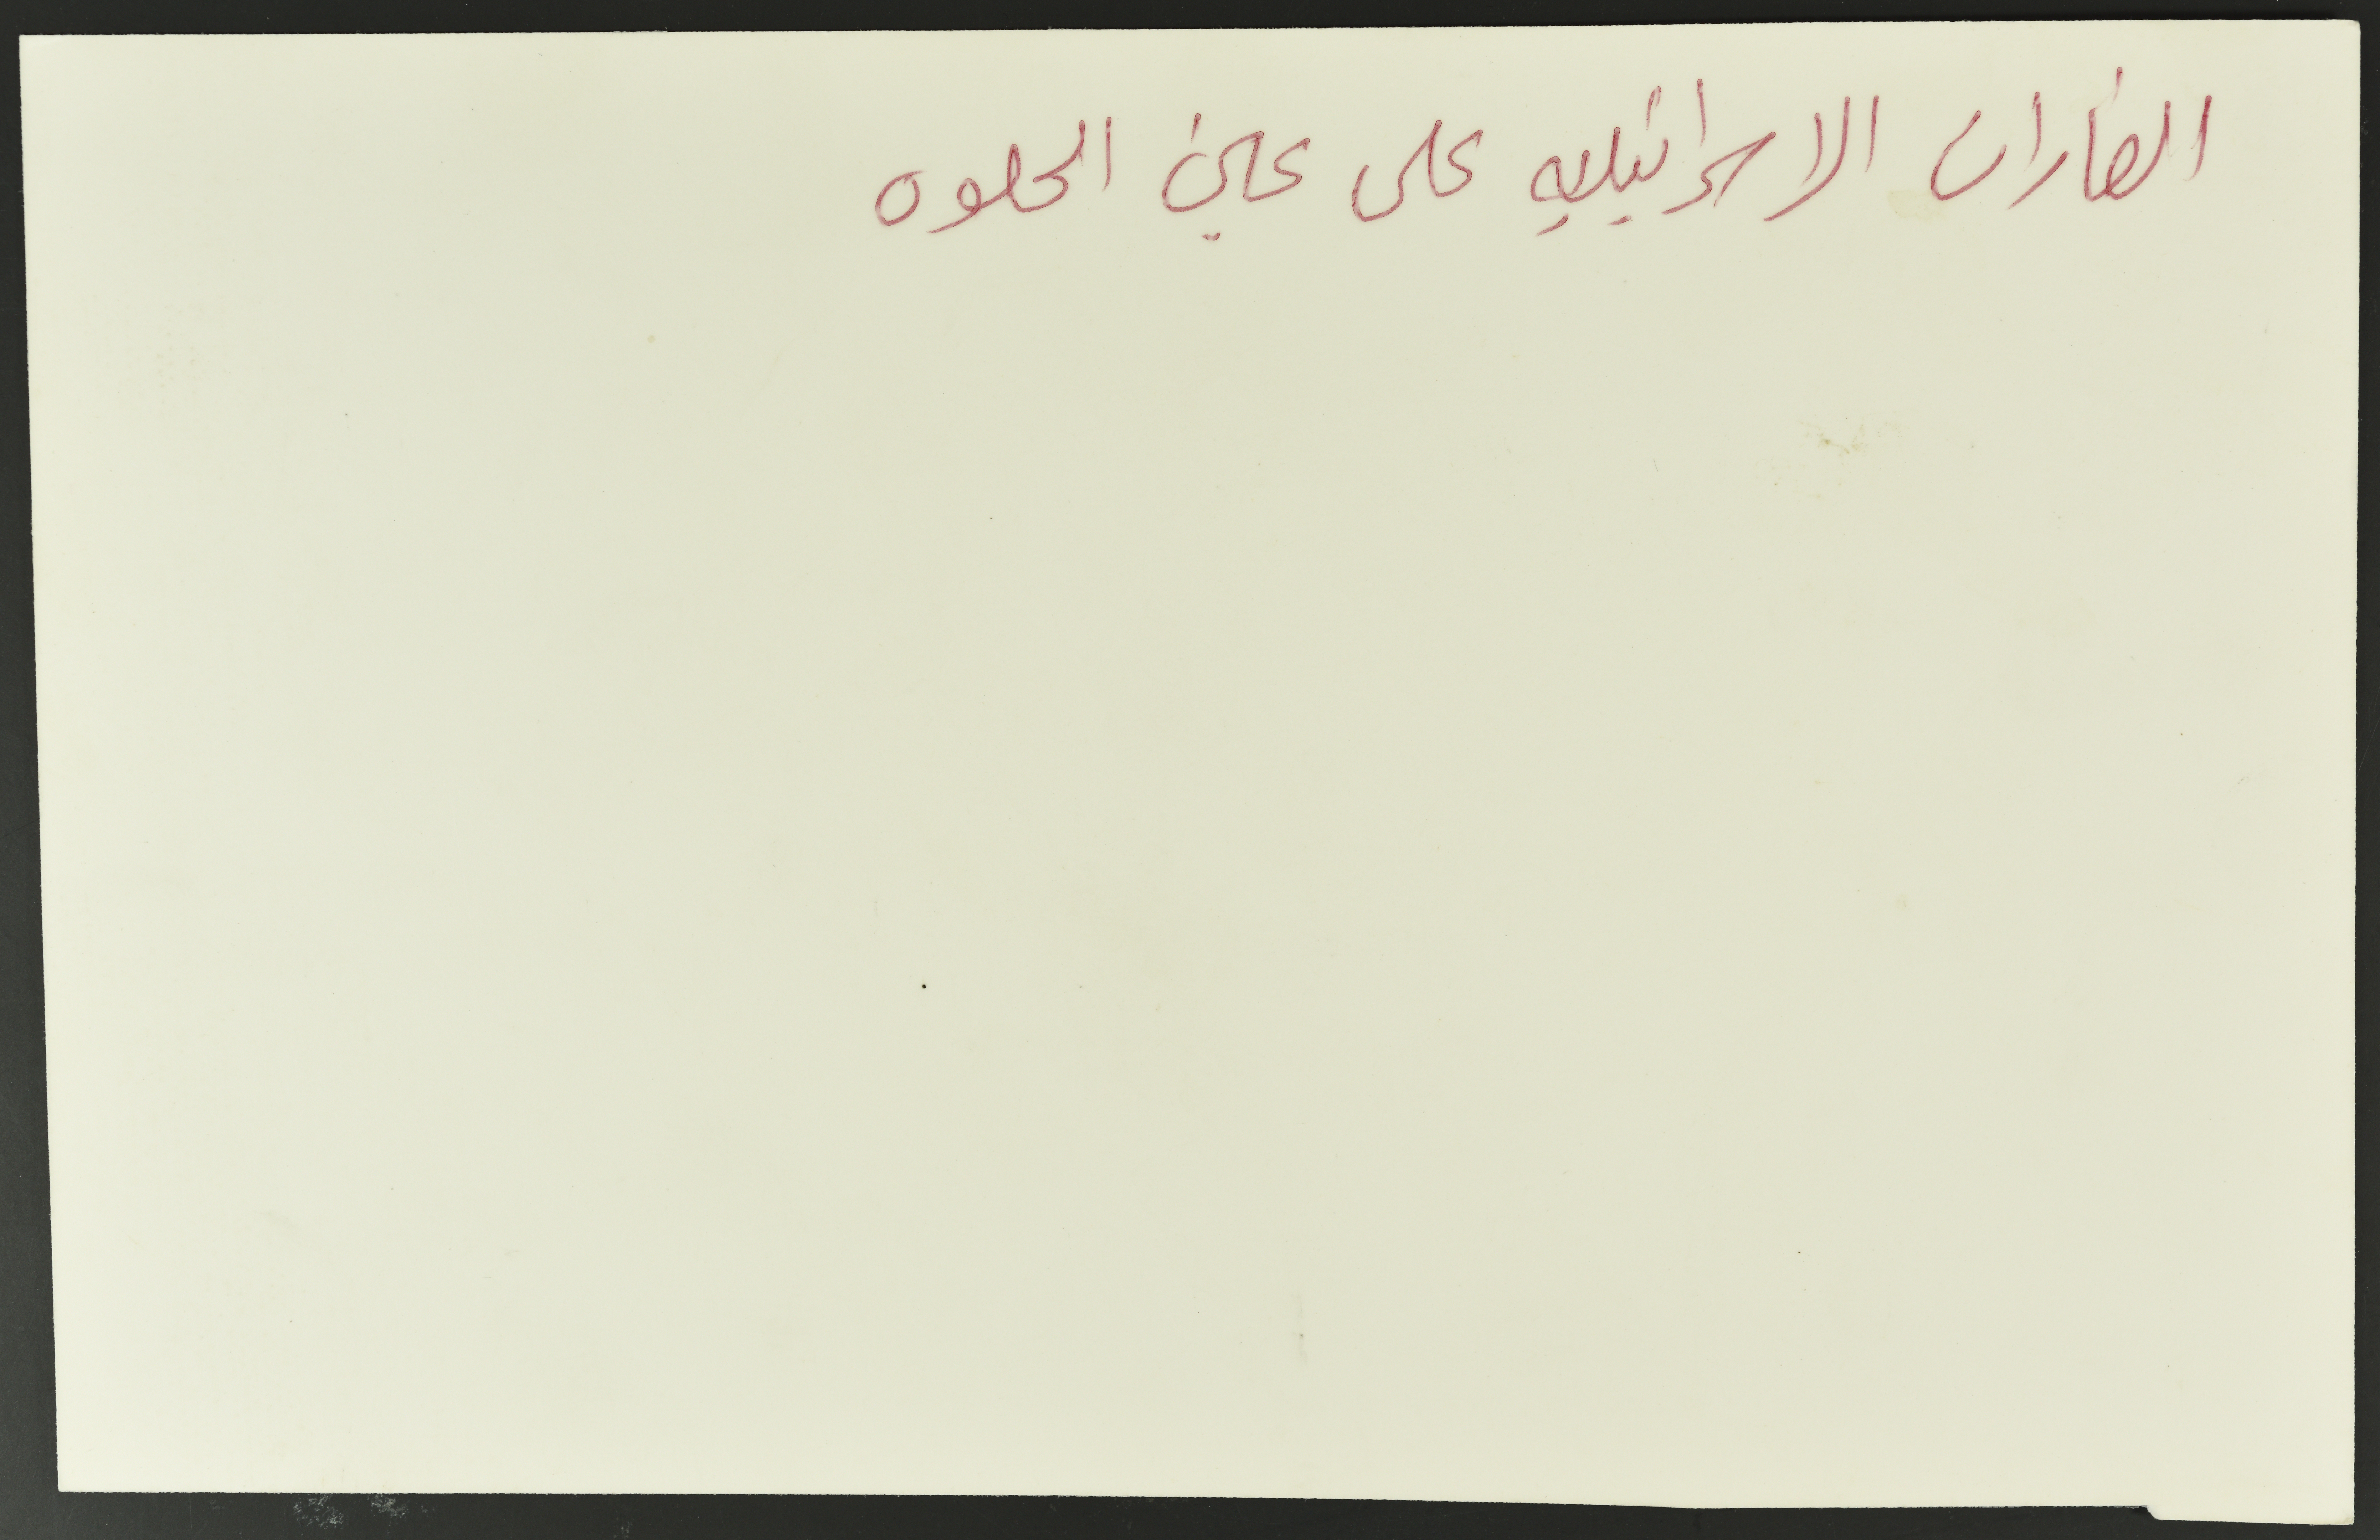 الغارات الاسرائيليه على عين الحلوه